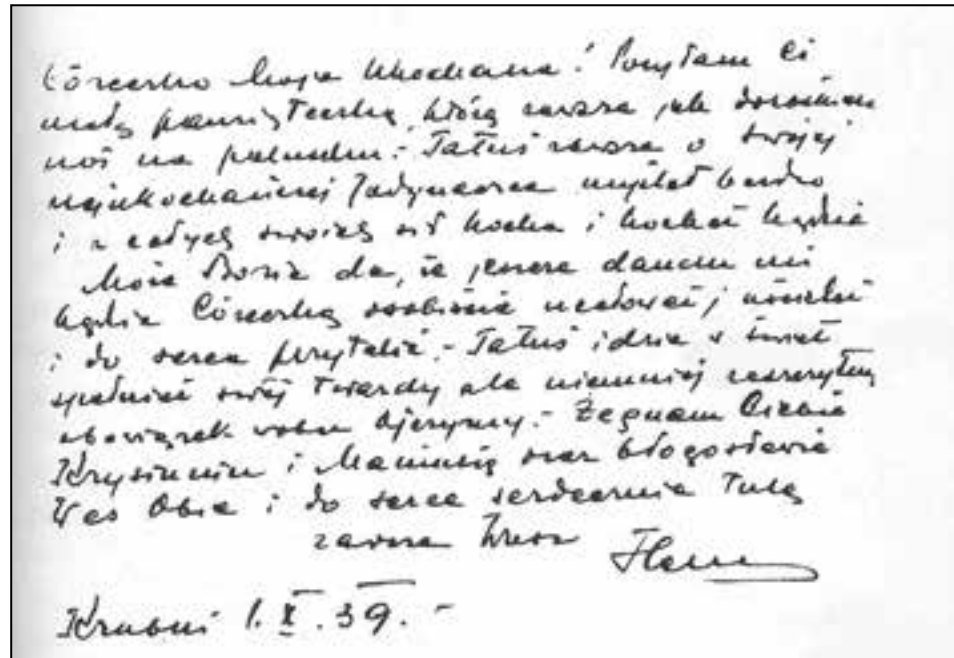 Córeczko Moja Ukochana! Posyłam Ci
małą pamiąteczkę, którą zawsze jak dorośniesz
noś na paluszku.- Tatuś zawsze o swojej
najukochańszej Jedynaczce myślał bardzo
i z całych swoich sił kocha i kochać będzie
Może Bozia da, że jeszcze danem mi
będzie Córeczkę osobiście ucałować, uściskać
i do serca przytulić.- Tatuś idzie w świat
spełniać swój twardy ale niemniej zaszczytny
obowiązek wobec Ojczyzny.- Żegnam Ciebie
Krysiuniu i Mamusię oraz błogosławię
Was Obie i do serca serdecznie tulę
zawsze Wasz
1.X.39.-